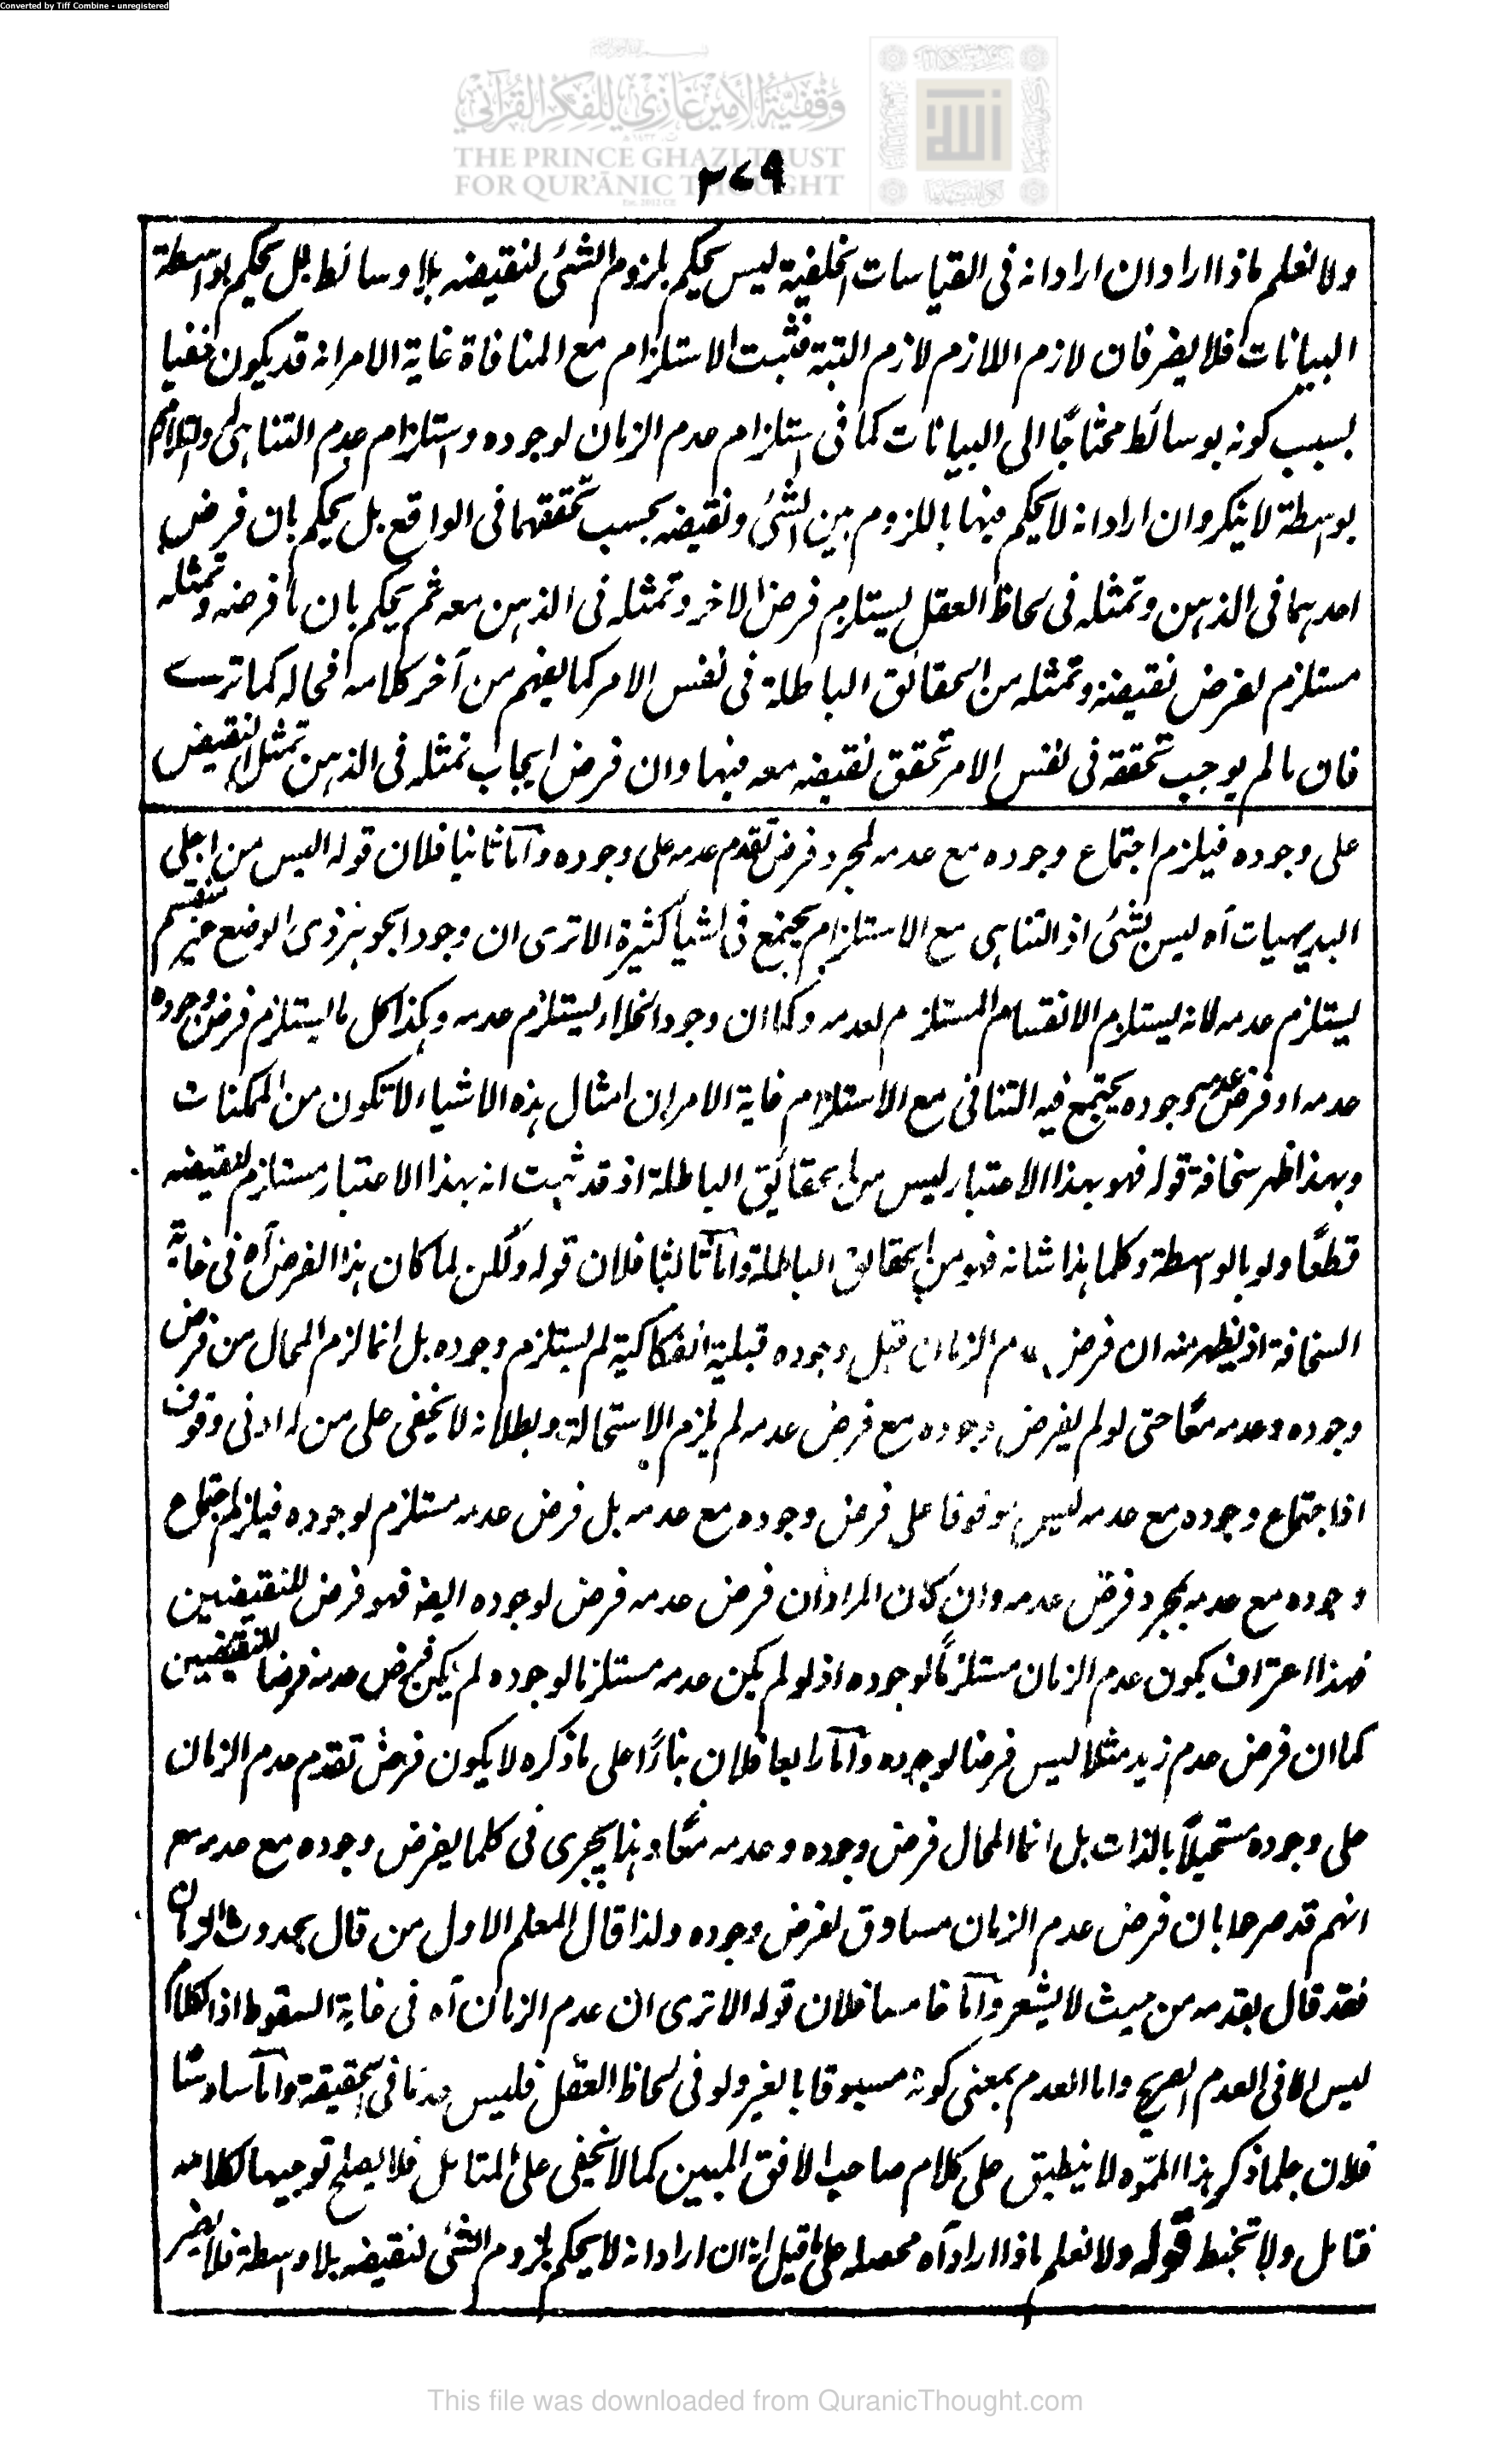 Converted by Tiff Combine - unregistered
وقفية الأمير غازي للفكر القرآني
THE PRINCE GHAZI TRUST
FOR QUR'ĀNIC THOUGHT
٣٧٩
ولا نعلم ماذا اراد ان اراد انه فى القياسات الخلفية ليس يحكم بلزوم الشئ لنقيضه بلا وسائط بل يحكم بواسطة
البيانات فلا يضر فان لازم اللازم لازم البتة فثبت الاستلزام مع المنافاة غاية الامر انه قد يكون خفيا
بسبب كونه بوسائط محتاجًا الى البيانات كما فى استلزام عدم الزمان لوجوده واستلزام عدم التناهى
بواسطة لا ينكر وان اراد انه لا يحكم فيها باللزوم بين الشئ ونقيضه بحسب تحققهما فى الواقع بل يحكم بان فرض
احدهما فى الذهن وتمثله فى لحاظ العقل يستلزم فرض الاخر وتمثله فى الذهن معه ثم يحكم بان ما فرضه وتمثله
مستلزم لفرض نقيضه وتمثله من الحقائق الباطلة فى نفس الامر كما يفهم من آخر كلامه فحاله كما ترى
فان ما لم يوجب تحققه فى نفس الامر تحقق نقيضه معه فيها وان فرض ايجاب تمثله فى الذهن تمثل النقيض
على وجوده فيلزم اجتماع وجوده مع عدمه لمجرد فرض تقدم عدمه على وجوده وامّا ثانيا فلان قوله اليس من اجلى
البديهيات آه ليس بشئ اذ التناهى مع الاستلزام يجتمع فى اشيأ كثيرة الا ترى ان وجود الجوهر ذى الوضع غير منقسم
يستلزم عدمه لانه يستلزم الانقسام المستلزم لعدمه وكما ان وجود الخلاء يستلزم عدمه وهكذا كل ما يستلزم فرض وجوده
عدمه او فرض عدمه وجوده يجتمع فيه التنافى مع الاستلزام غاية الامر ان امثال هذه الاشياء لا تكون من الممكنات
وبهذا ظهر سخافة قوله فهو بهذا الاعتبار ليس من الحقائق الباطلة اذ قد ثبت انه بهذا الاعتبار مستلزم لنقيضه
قطعًا ولو بالواسطة وكلما هذا شانه فهو من الحقائق الباطلة وامّا ثالثا فلان قوله ولكن لما كان هذا الفرض آه فى غاية
السخافة اذ يظهر منه ان فرض عدم الزمان قبل وجوده قبلية انفكاكية لم يستلزم وجوده بل انما لزم المحال من فرض
وجوده وعدمه معًا حتى لو لم يفرض وجوده مع فرض عدمه لم يلزم الاستحالة وبطلانه لا يخفى على من له ادنى وقوف
اذ اجتماع وجوده مع عدمه ليس موقوفا على فرض وجوده مع عدمه بل فرض عدمه مستلزم لوجوده فيلزم اجتماع
وجوده مع عدمه بمجرد فرض عدمه وان كان المراد ان فرض عدمه فرض لوجوده ايضه فهو فرض للنقيضين
فهذا اعتراف بكون عدم الزمان مستلزمًا لوجوده اذ لو لم يكن عدمه مستلزما لوجوده لم يكن فرض عدمه فرضا للنقيضين
كما ان فرض عدم زيد مثلا ليس فرضا لوجوده وامّا رابعا فلان بناءًا على ما ذكره لا يكون فرض تقدم عدم الزمان
على وجوده مستحيلاً بالذات بل انما المحال فرض وجوده وعدمه معًا وهذا يجرى فى كلما يفرض وجوده مع عدمه مع
انهم قد صرحوا بان فرض عدم الزمان مساوق لفرض وجوده ولذا قال المعلم الاول من قال بحدوث الزمان
فقد قال بقدمه من حيث لا يشعر وامّا خامسا فلان قوله الا ترى ان عدم الزمان آه فى غاية السقوط اذ الكلام
ليس الا فى العدم الصريح واما العدم بمعنى كونه مسبوقا بالغير ولو فى لحاظ العقل فليس عدما فى الحقيقة وامّا سادسًا
فلان جلما ذكر هذا المموّه لا ينطبق على كلام صاحب الافق المبين كما لا يخفى على المتامل فلا يصلح توجيها لكلامه
فتامل ولا تخبط قوله ولا نعلم ماذا اراد آه محصله على ما قيل انه ان اراد انه لا يحكم بلزوم الشئ لنقيضه بلا واسطة فلا يضر
This file was downloaded from QuranicThought.com